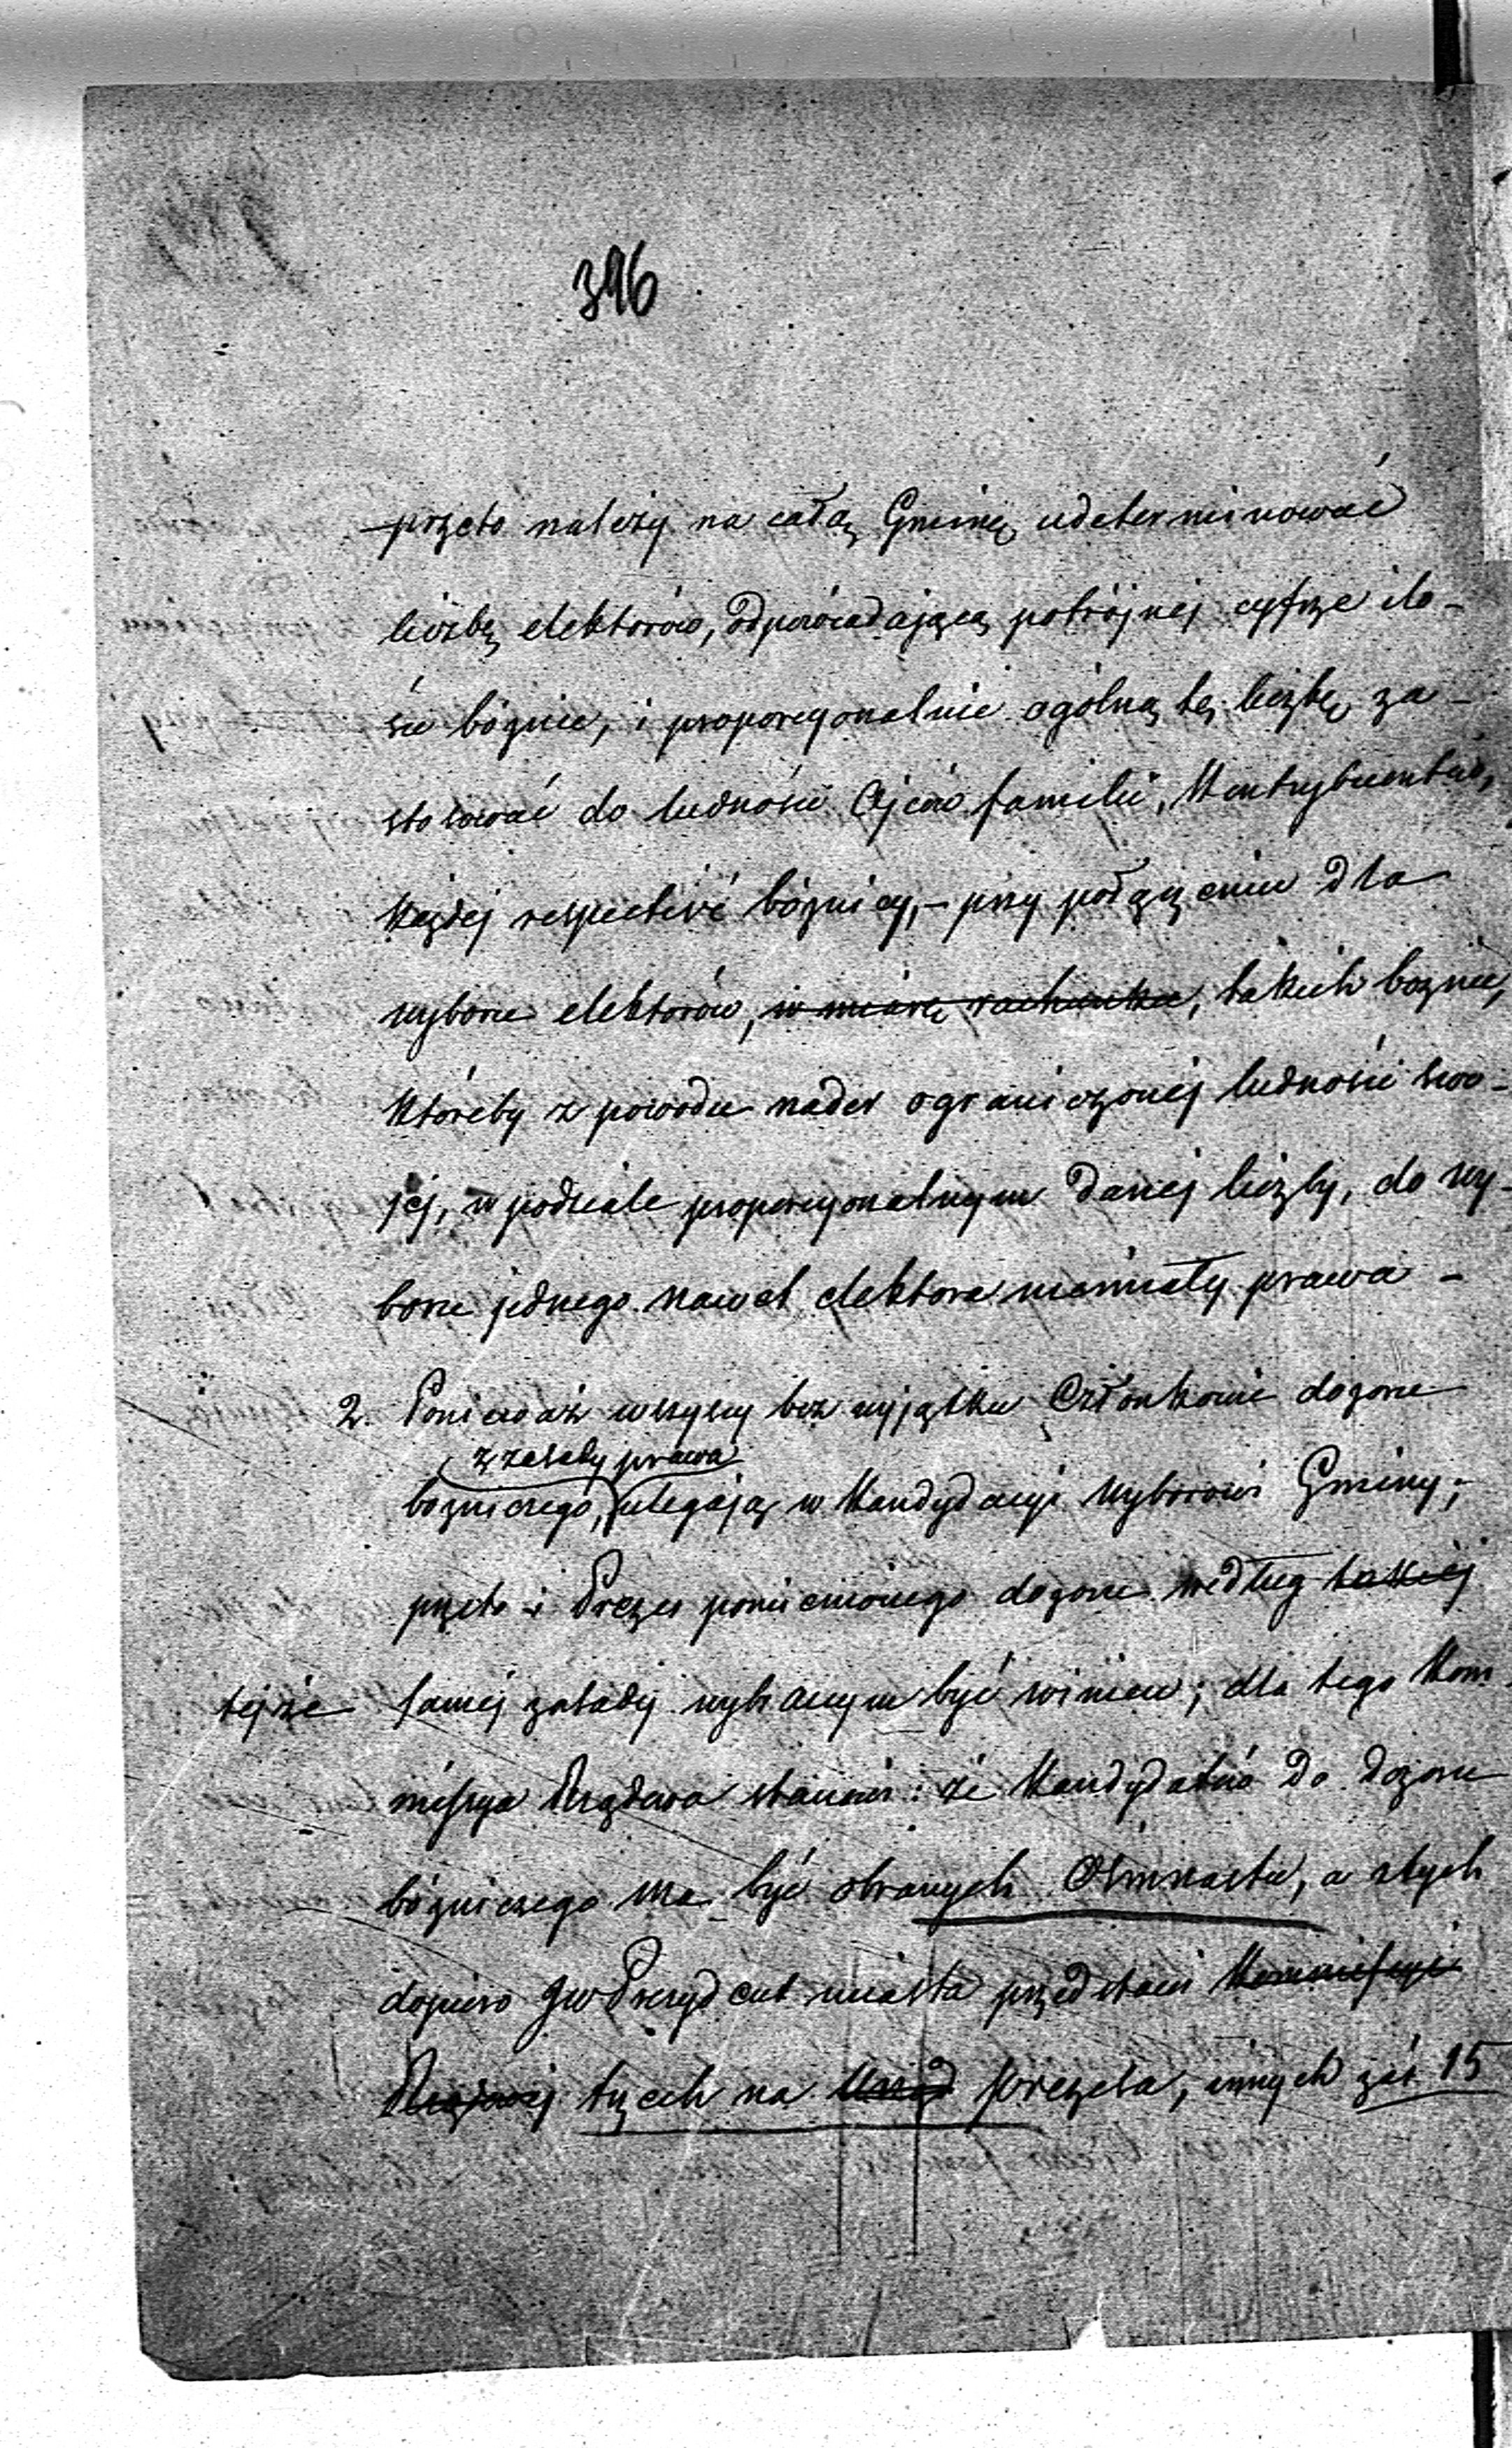 396
przeto należy na całą Gminę udeterminować
liczbę elektorów, odpowiadającą potrójnej cyfrze ilo-
ści bóżnic, i proporcyonalnie ogólną tę liczbę za-
stosować do ludności Ojców familii, Kontrybuentów,
każdej respective bóżnicy, - przy połączeniu dla
wyboru elektorów, w miarę rachunku, takich bożnic,
któreby z powodu nader ograniczonej ludności swo-
jej, w podziale proporcyonalnym danej liczby, do wy-
boru jednego nawet elektora niemiały prawa -
2. Ponieważ wszyscy bez wyjątku Członkowie dozoru
z zasady prawa
bożniczego, ulegają w Kandydacyi wyborowi Gminy;
przeto i Prezes pomienionego dozoru według takiej
tejże samej zasady wybranym być winien; dla tego Kom
missya Rządowa stanowi: że Kandydatów do dozoru
bóżniczego ma być obranych Ośmnastu, a z tych
dopiero JW Prezydent miasta przedstawi Kommissyi
Rządowej trzech na Urząd prezesa, innych zaś 15